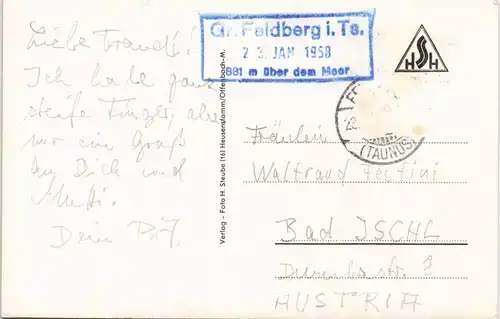 Liebe Traudl!
Ich habe ganz
steife Finger, also
nur ein Gruß
an Dich und
Mutti.
Dein
Gr. Feldberg i. Ts.
23. JAN 1958
881 m über dem Meer
HSH
(TAUNUS)
Verlag - Foto H. Steube (16) Heusenstamm/Offenbach-M.
Fräulein
Waltraud
Bad ISCHL
str. 2
AUSTRIA